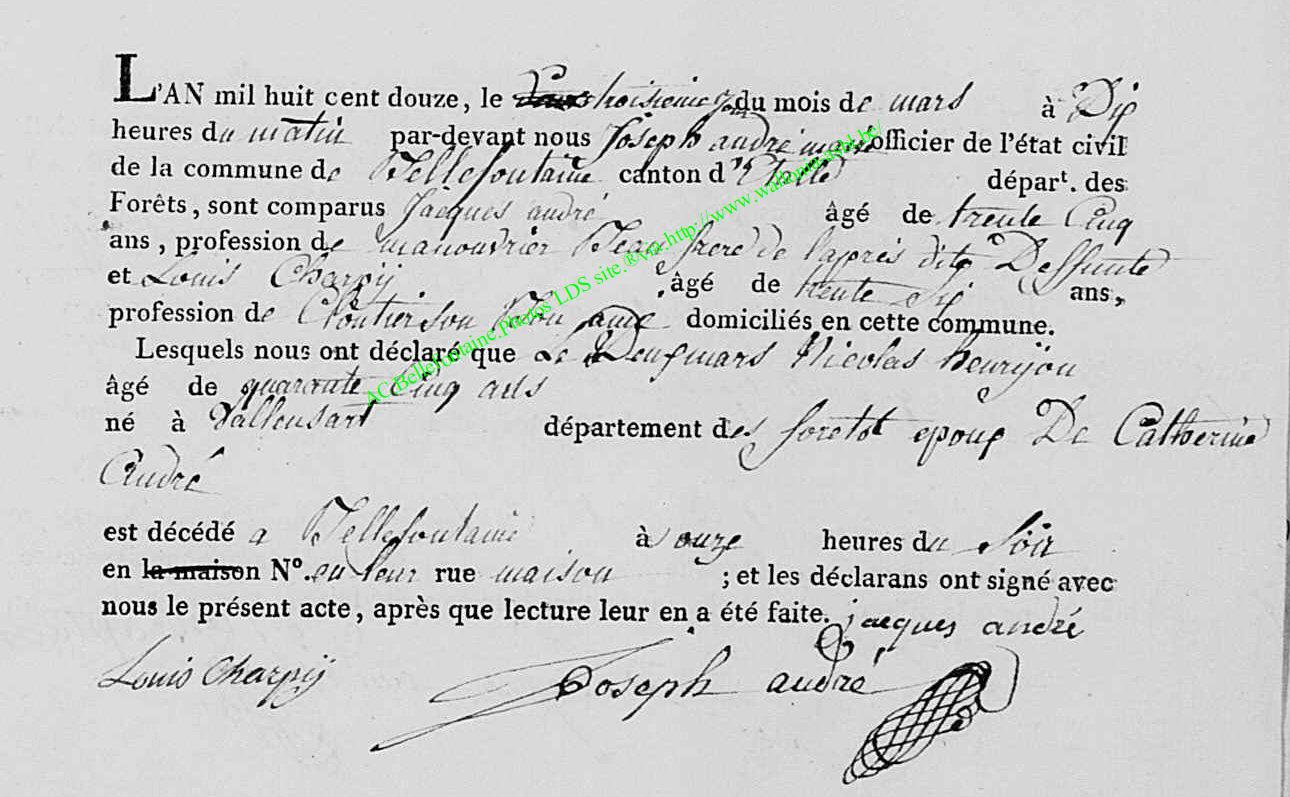 L'AN mil huit cent douze, le troisieme jour du mois de mars à Dix
heures du matin par-devant nous Joseph andré maire officier de l'état civil
de la commune de Bellefontaine canton d'Etalleépart. des
Forêts, sont comparus Jacques andré âgé de trente Cinq
ans, profession de manouvrier Beau frere de l'aprés dite Deffunte
et Louis Charpij âgé de trente Six ans,
profession de Cloutier son Bon amie domiciliés en cette commune.
Lesquels nous ont déclaré que Le Deux mars Nicolas henrijon
âgé de quarante Cinq ans
né à Vallensart département des foretot epoux De Catherine
André
est décédé a Bellefontaine à onze heures du Soir
en la maison N°. en leur rue maison ; et les déclarans ont signé avec
nous le présent acte, après que lecture leur en a été faite. jacques andré
Louis Charpij Joseph andré
AC.Bellefontaine.Photos LDS site.®via.http://www.wallonica.be/